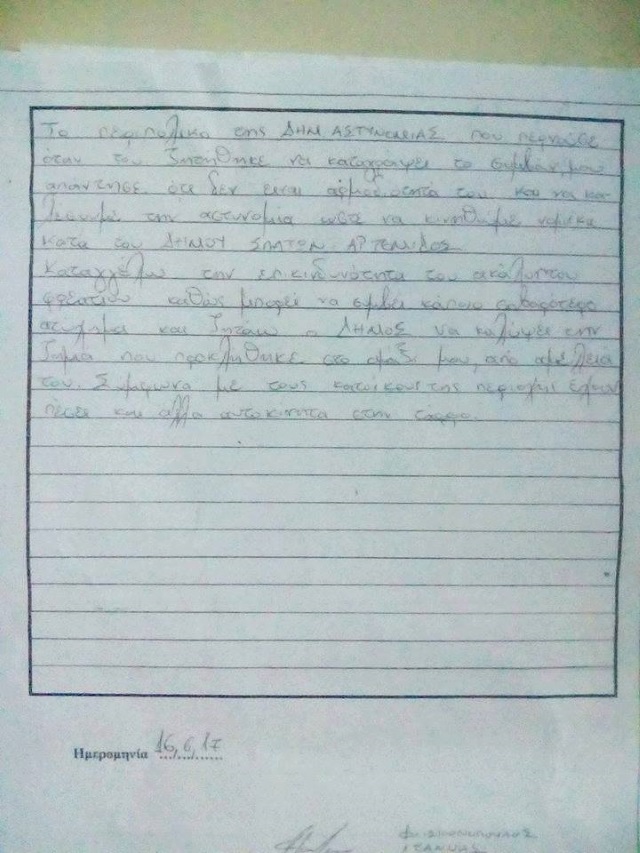 Το περιπολικο της ΔΗΜ ΑΣΤΥΝΟΜΙΑΣ που περνούσε
όταν του ζητηθηκε να καταγράψει το συμβάν, μου
απαντησε ότι δεν ειναι αρμοδιότητα του και να κα-
λέσουμε την αστυνομια ώστε να κινηθούμε νομικα
κατα του ΔΗΜΟΥ ΣΠΑΤΩΝ ΑΡΤΕΜΙΔΟΣ.
Καταγγέλω την επικινδυνότητα του ακάλυπτου
φρεατιου καθώς μπορεί να συμβει κάποιο σοβαρότερο
ατυχημα και ζητάω ο ΔΗΜΟΣ να καλύψει την
ζημια που προκληθηκε στο αμάξι μου, από αμέλεια
του. Συμφωνα με τους κατοίκους της περιοχης έχουν
πέσει και αλλα αυτοκινητα στην
Ημερομηνία 16,6,17
ΙΩΑΝΝΗΣ